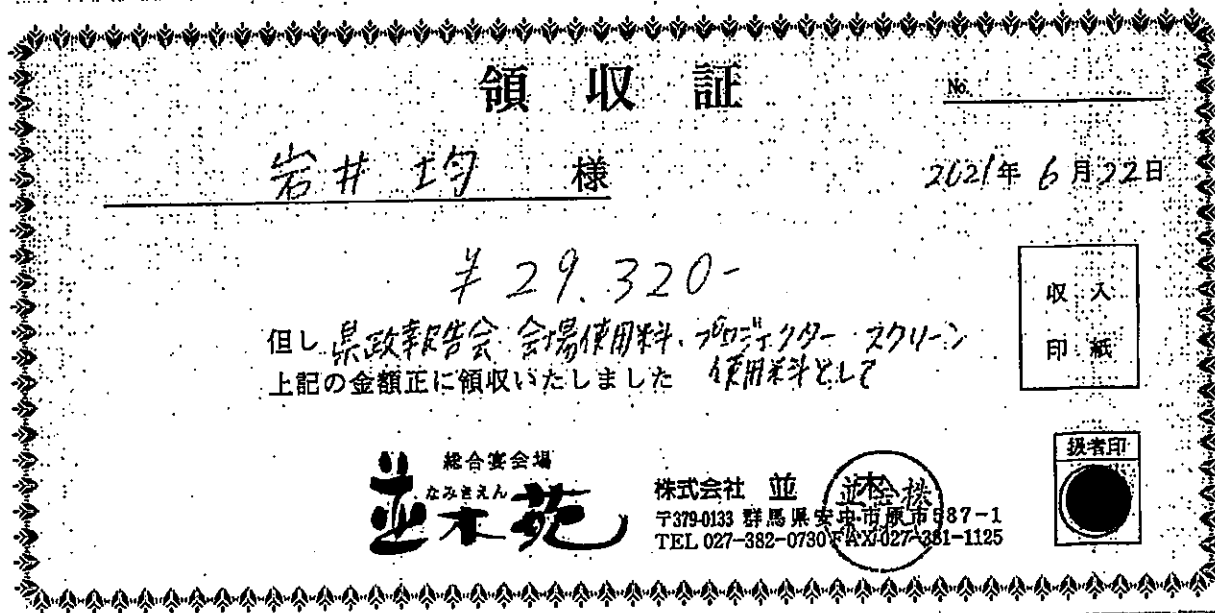 領収証
No.
岩井 均 様
2021年 6月22日
¥29.320-
収入
印紙
但し 県政報告会 会場使用料、プロジェクター スクリーン
使用料として
上記の金額正に領収いたしました
扱者印
総合宴会場
なみきえん
並木苑
株式会社 並木
〒379-0133 群馬県安中市原市587-1
TEL 027-382-0730 FAX 027-381-1125